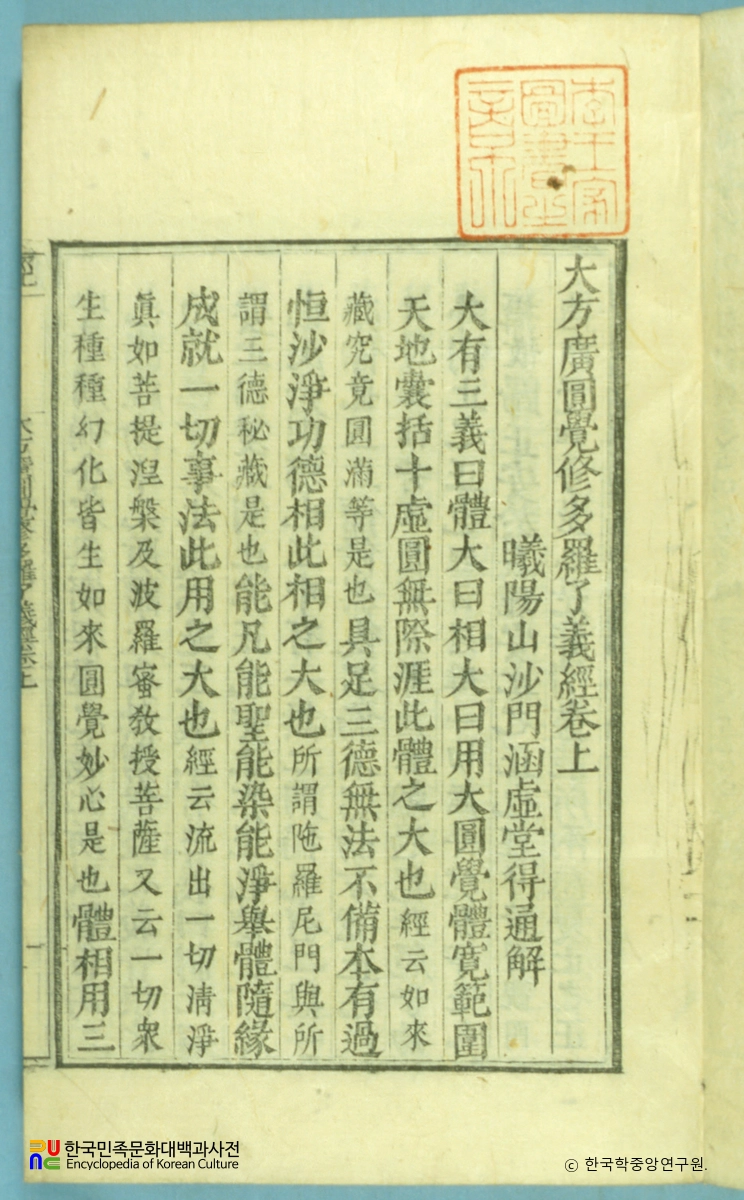 大方廣圓覺修多羅了義經卷上
曦陽山沙門涵虛堂得通解
大有三義曰體大曰相大曰用大圓覺體寬範圍
天地囊括十虛圓無際涯此體之大也經云如來
藏究竟圓滿等是也具足三德無法不備本有過
恒沙淨功德相此相之大也所謂陁羅尼門與所
謂三德秘藏是也能凡能聖能染能淨舉體隨緣
成就一切事法此用之大也經云流出一切淸淨
眞如菩提涅槃及波羅蜜敎授菩薩又云一切衆
生種種幻化皆生如來圓覺妙心是也體相用三
李王家
圖書
한국민족문화대백과사전
Encyclopedia of Korean Culture
© 한국학중앙연구원.